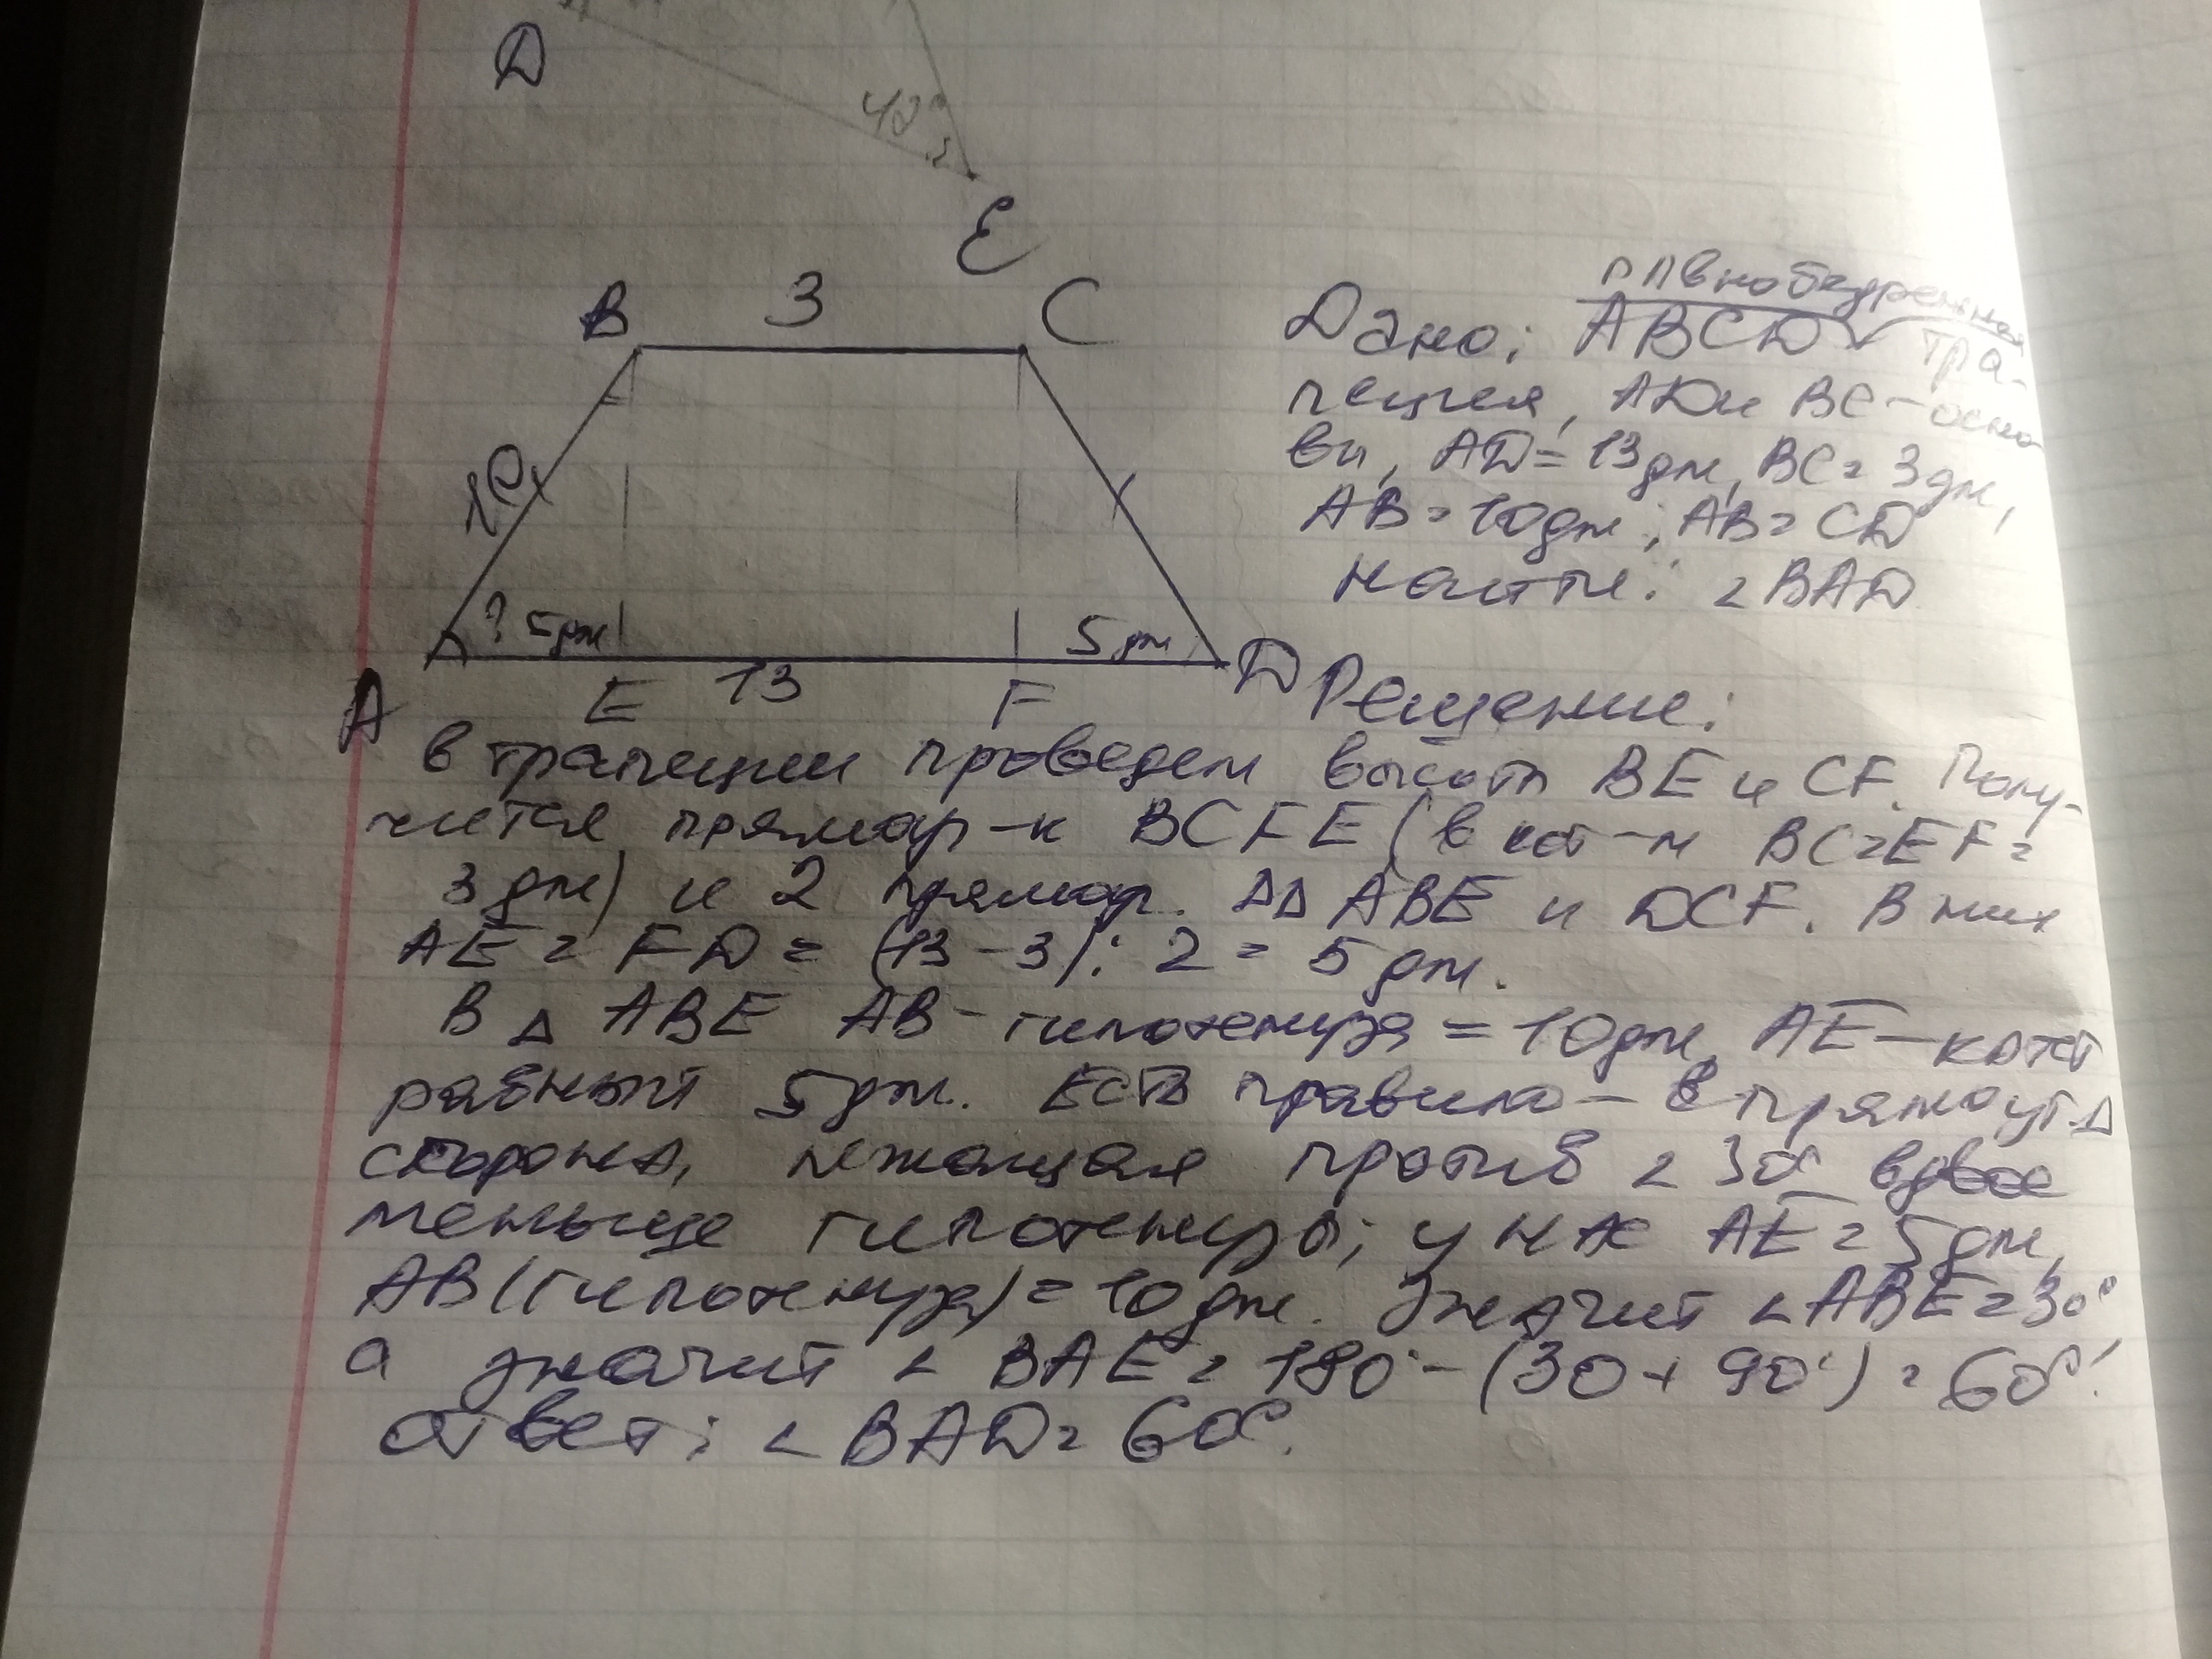 D
42°
E
B 3 C
10
? 5дм 5дм
A E 13 F D
равнобедренная
Дано: ABCD тра-
пеция, AD и BC - осно-
ви, AD = 13дм, BC = 3дм,
AB = 10дм, AB = CD
Найти: ∠BAD
Решение:
В трапеции проведем высоты BE и CF. Полу-
чится прямоуг-к BCFE (в кот-м BC=EF=
3дм) и 2 прямоуг. ΔΔ ABE и DCF. В них
AE = FD = (13-3):2 = 5дм.
В Δ ABE AB - гипотенуза = 10дм, AE - катет
равный 5дм. Есть правило - в прямоуг. Δ
сторона, лежащая против ∠30° вдвое
меньше гипотенузы; у нас AE = 5дм,
AB (гипотенуза) = 10дм. Значит ∠ABE = 30°
а значит ∠BAE = 180° - (30 + 90°) = 60°.
ответ: ∠BAD = 60°.